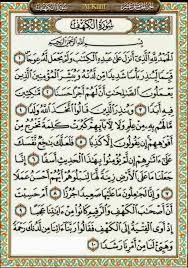 سُورَةُ الكَهْفِ
Al-Kahf
الجزء الخامس عشر
سُورَةُ الكَهْفِ
بِسْمِ ٱللَّهِ ٱلرَّحْمَٰنِ ٱلرَّحِيمِ
ٱلْحَمْدُ لِلَّهِ ٱلَّذِىٓ أَنزَلَ عَلَىٰ عَبْدِهِ ٱلْكِتَٰبَ وَلَمْ يَجْعَل لَّهُۥ عِوَجَا ۜ ١
قَيِّمًا لِّيُنذِرَ بَأْسًا شَدِيدًا مِّن لَّدُنْهُ وَيُبَشِّرَ ٱلْمُؤْمِنِينَ ٱلَّذِينَ
يَعْمَلُونَ ٱلصَّٰلِحَٰتِ أَنَّ لَهُمْ أَجْرًا حَسَنًا ٢ مَّٰكِثِينَ
فِيهِ أَبَدًا ٣ وَيُنذِرَ ٱلَّذِينَ قَالُوا۟ ٱتَّخَذَ ٱللَّهُ وَلَدًا ٤
مَّا لَهُم بِهِۦ مِنْ عِلْمٍ وَلَا لِءَابَآئِهِمْ ۚ كَبُرَتْ كَلِمَةً تَخْرُجُ مِنْ
أَفْوَٰهِهِمْ ۚ إِن يَقُولُونَ إِلَّا كَذِبًا ٥ فَلَعَلَّكَ بَٰخِعٌ نَّفْسَكَ
عَلَىٰٓ ءَاثَٰرِهِمْ إِن لَّمْ يُؤْمِنُوا۟ بِهَٰذَا ٱلْحَدِيثِ أَسَفًا ٦ إِنَّا
جَعَلْنَا مَا عَلَى ٱلْأَرْضِ زِينَةً لَّهَا لِنَبْلُوَهُمْ أَيُّهُمْ أَحْسَنُ عَمَلًا ٧
وَإِنَّا لَجَٰعِلُونَ مَا عَلَيْهَا صَعِيدًا جُرُزًا ٨ أَمْ حَسِبْتَ
أَنَّ أَصْحَٰبَ ٱلْكَهْفِ وَٱلرَّقِيمِ كَانُوا۟ مِنْ ءَايَٰتِنَا عَجَبًا ٩
إِذْ أَوَى ٱلْفِتْيَةُ إِلَى ٱلْكَهْفِ فَقَالُوا۟ رَبَّنَآ ءَاتِنَا مِن لَّدُنكَ رَحْمَةً
وَهَيِّئْ لَنَا مِنْ أَمْرِنَا رَشَدًا ١٠